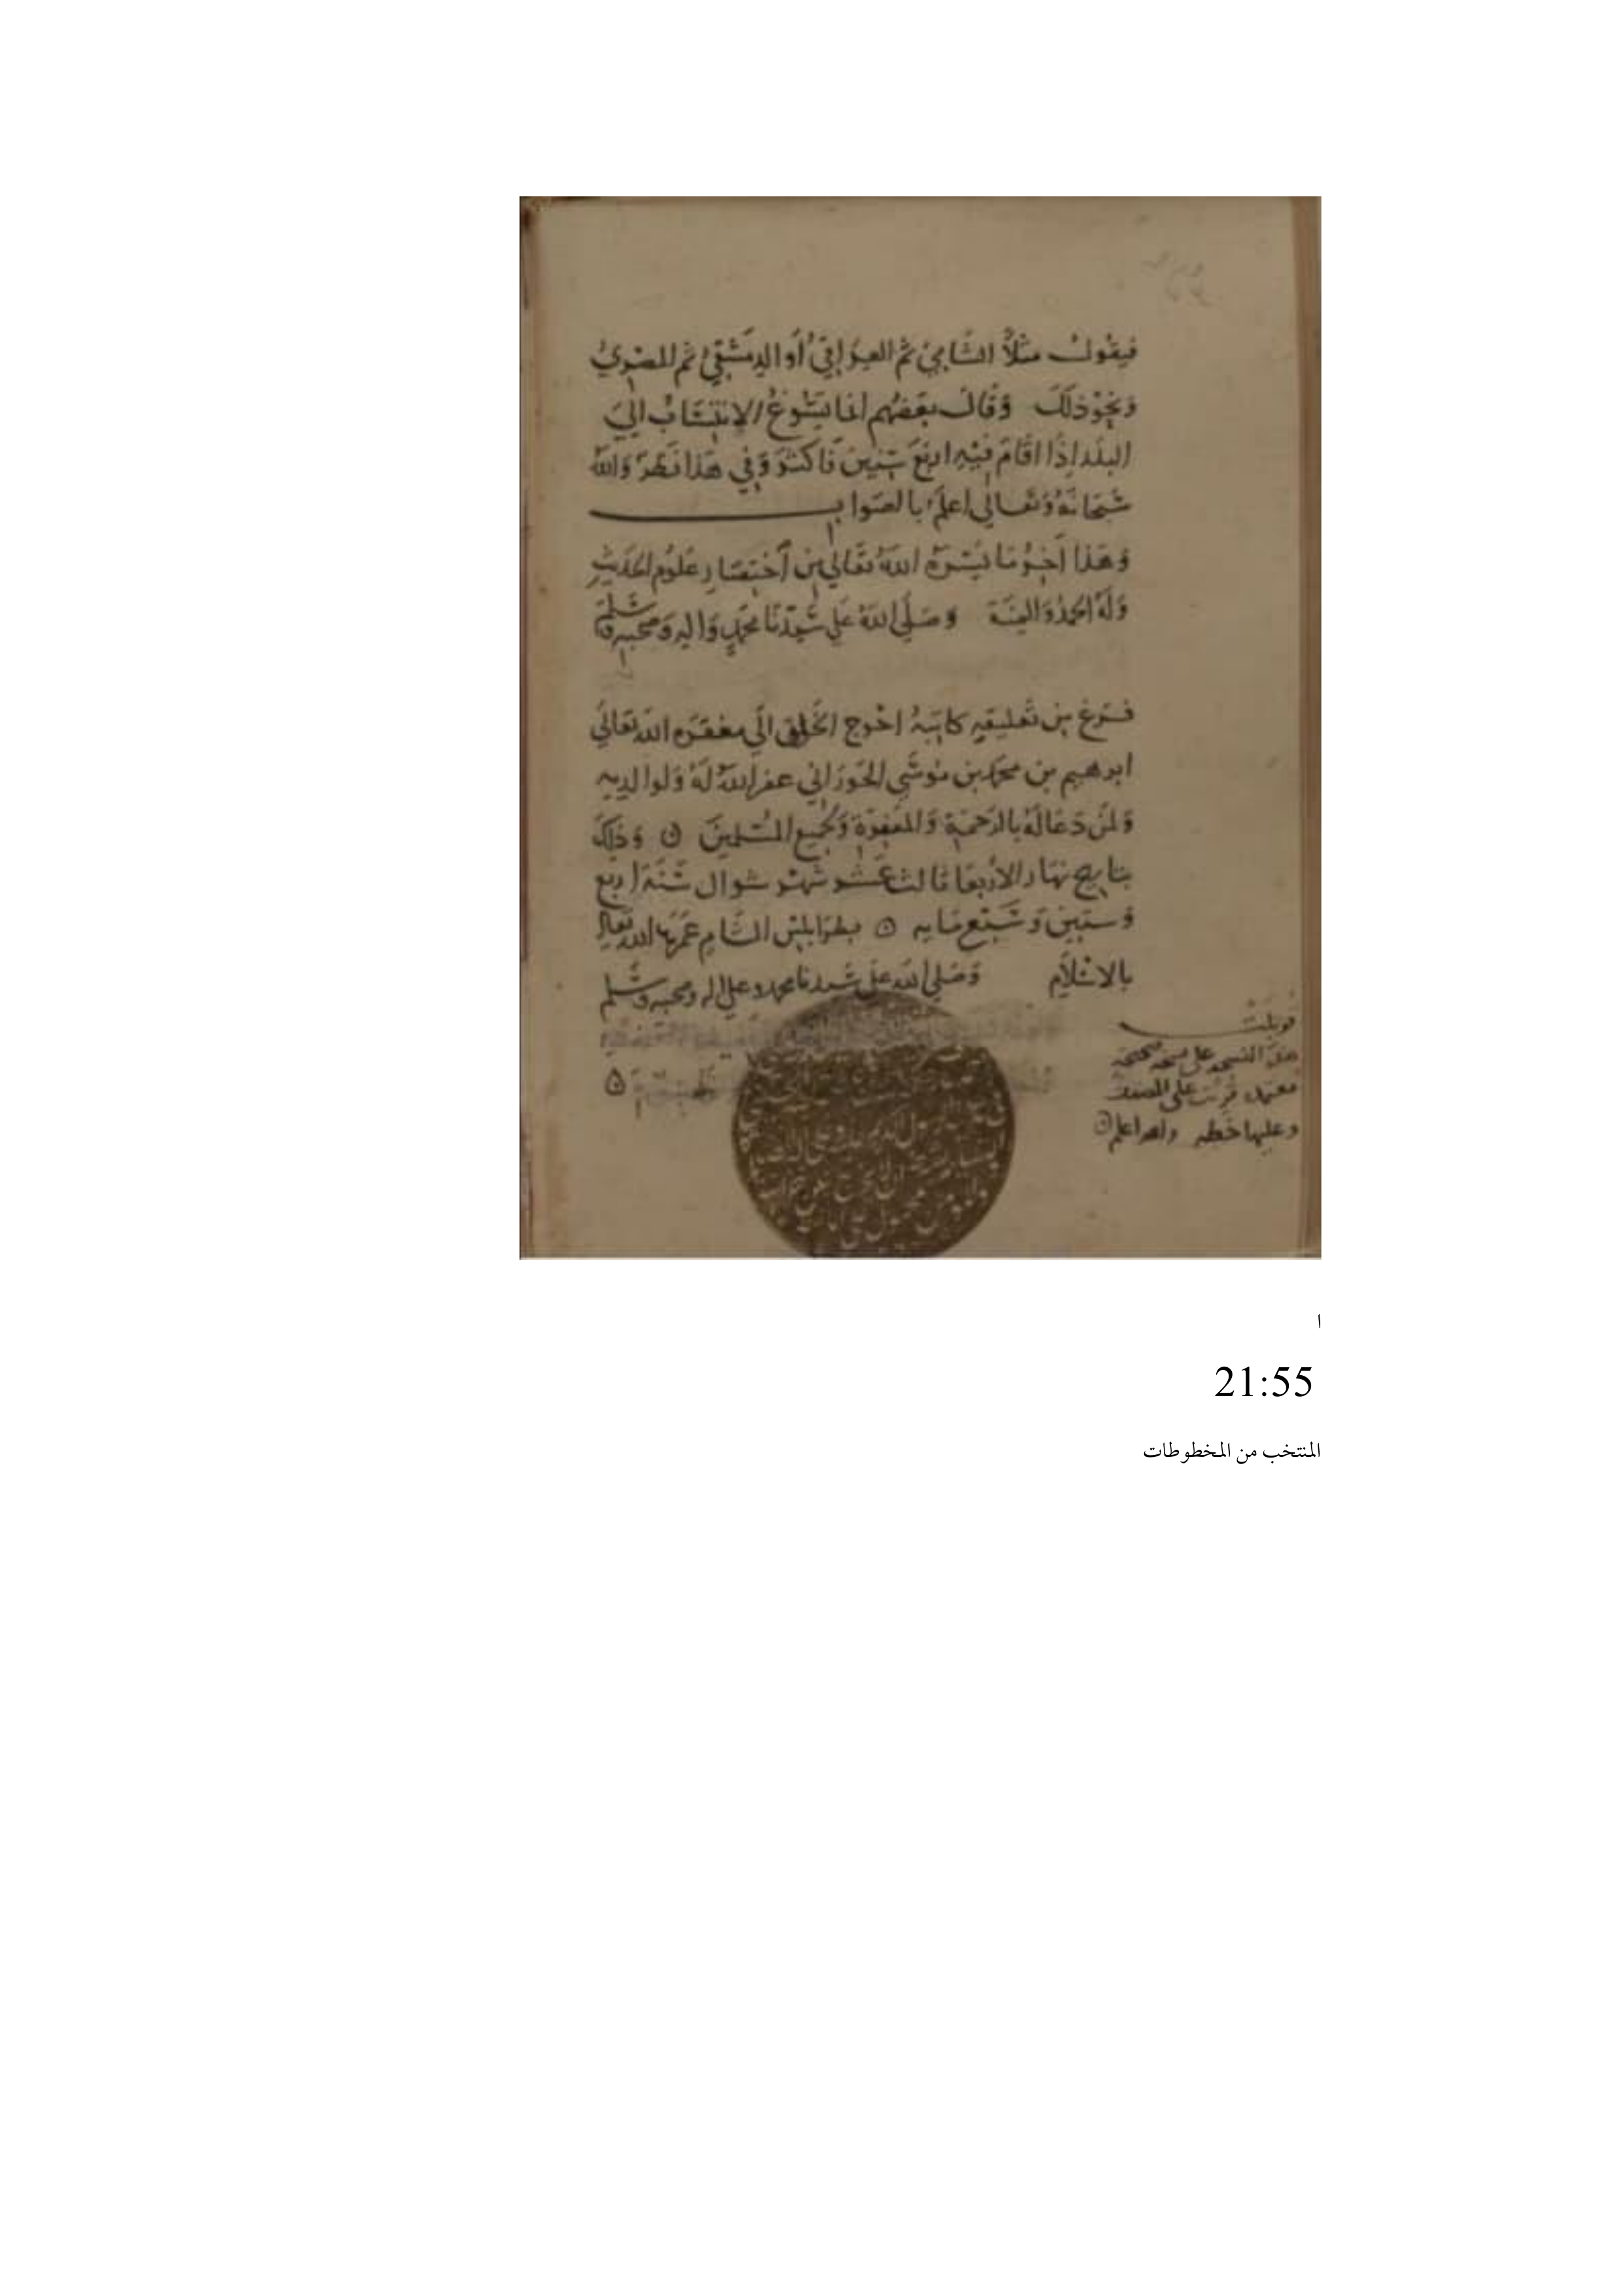 فيقول مثلاً الشامي ثم العراقي أو الدمشقي ثم المصري
ونحو ذلك وقال بعضهم انما يسوغ الانتساب الي
البلد اذا اقام فيه اربع سنين فاكثر وفي هذا نظر والله
سبحانه وتعالي اعلم بالصواب
وهذا آخر ما يسره الله تعالي من اختصار علوم الحديث
وله الحمد والمنة وصلي الله علي سيدنا محمد واله وصحبه وسلم
فرغ من تعليقه كاتبه احوج الخلق الي مغفرة الله تعالي
ابرهيم بن محمد بن موسي الحوراني غفر الله له ولوالديه
ولمن دعا له بالرحمة والمغفرة ولجميع المسلمين وذلك
بتاريخ نهار الاربعا ثالث عشر شهر شوال سنة اربع
وستين وسبع مايه بطرابلس الشام عمرها الله تعالي
بالاسلام وصلي الله علي سيدنا محمد وعلي اله وصحبه وسلم
قوبلت
هذه النسخه علي نسخه صحيحه
معتمده قرئت علي المصنف
وعليها خطه والله اعلم
ا
21:55
المنتخب من المخطوطات